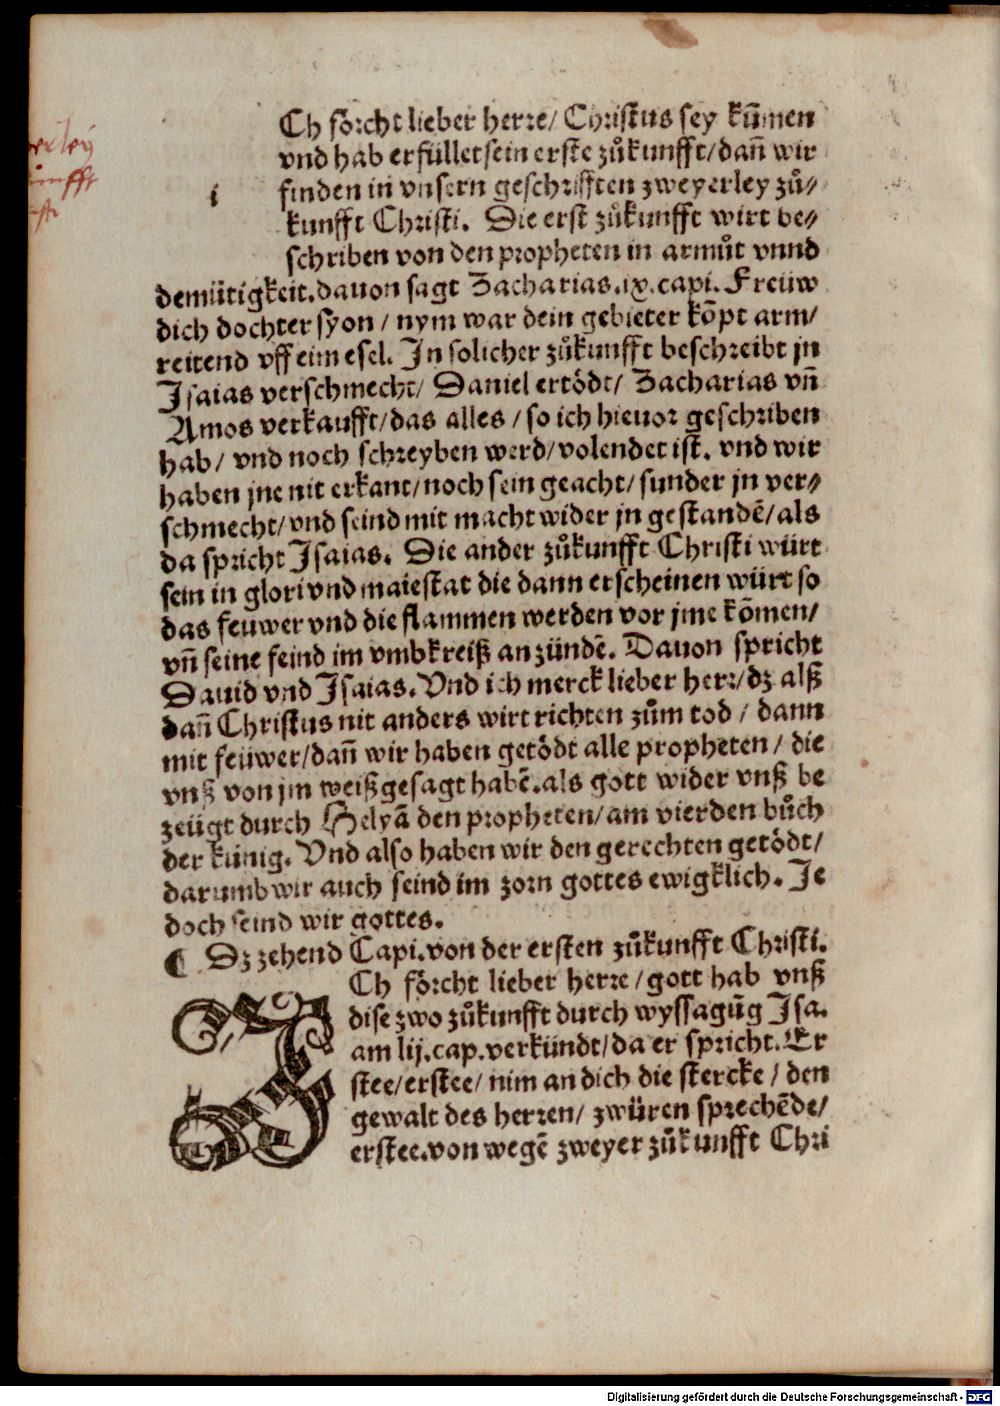 Ch förcht lieber herre/ Christus sey kum̄en
vnd hab erfüllet sein erste zůkunfft/ dañ wir
i finden in vnsern geschrifften zweyerley zů⸗
kunfft Christi. Die erst zůkunfft wirt be⸗
schriben von den propheten in armůt vnnd
demütigkeit. dauon sagt Zacharias. ix. capi. Freüw
dich dochter syon / nym war dein gebieter kōpt arm/
reitend vff eim esel. In solicher zůkunfft beschreibt jn
Isaias verschmecht/ Daniel ertödt/ Zacharias vñ
Amos verkaufft/ das alles / so ich hieuor geschriben
hab/ vnd noch schreyben werd/ volendet ist. vnd wir
haben jne nit erkant/ noch sein geacht/ sunder jn ver⸗
schmecht/ vnd seind mit macht wider jn gestandē/ als
da spricht Isaias. Die ander zůkunfft Christi würt
sein in glori vnd maiestat die dann erscheinen würt so
das feuwer vnd die flammen werden vor jme kōmen/
vñ seine feind im vmbkreiß anzündē. Dauon spricht
Dauid vnd Isaias. Vnd ich merck lieber herr/ dz alß
dañ Christus nit anders wirt richten zům tod / dann
mit feüwer/ dañ wir haben getödt alle propheten / die
vnß von jm weißgesagt habē. als gott wider vnß be
zeügt durch Helyā den propheten/ am vierden bůch
der künig. Vnd also haben wir den gerechten getödt/
darumb wir auch seind im zorn gottes ewigklich. Je
doch seind wir gottes.
¶ Dz zehend Capi. von der ersten zůkunfft Christi.
ICh förcht lieber herre / gott hab vnß
dise zwo zůkunfft durch wyssagūg Isa.
am lij. cap. verkündt/ da er spricht. Er
stee/ erstee/ nim an dich die stercke / den
gewalt des herren/ zwüren sprechēde/
erstee. von wegē zweyer zůkunfft Chri
Digitalisierung gefördert durch die Deutsche Forschungsgemeinschaft - DFG